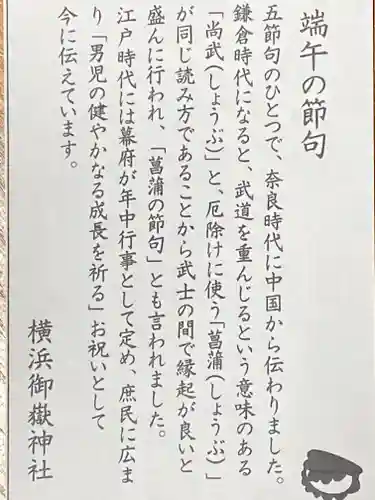 端午の節句
五節句のひとつで、奈良時代に中国から伝わりました。
鎌倉時代になると、武道を重んじるという意味のある
「尚武(しょうぶ)」と、厄除けに使う「菖蒲(しょうぶ)」
が同じ読み方であることから武士の間で縁起が良いと
盛んに行われ、「菖蒲の節句」とも言われました。
江戸時代には幕府が年中行事として定め、庶民に広ま
り「男児の健やかなる成長を祈る」お祝いとして
今に伝えています。
横浜御嶽神社